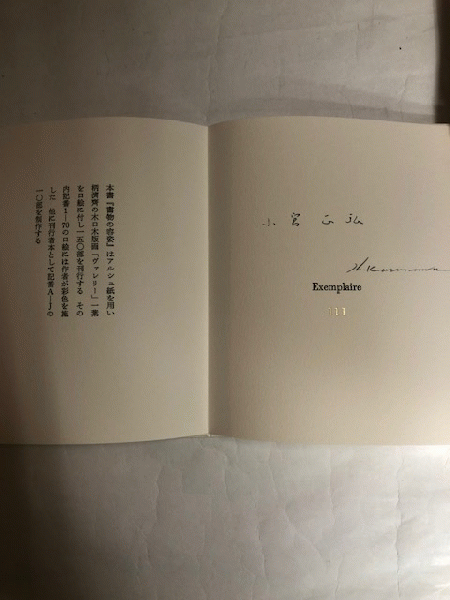 本書『書物の容姿』はアルシュ紙を用い
柄澤齊の木口木版画「ヴァレリー」一葉
を口絵に付し一五〇部を刊行する その
内記番1―70の口絵には作者が彩色を施
した 他に刊行者本として記番A―Jの
一〇部を製作する
小宮正弘
Exemplaire
113